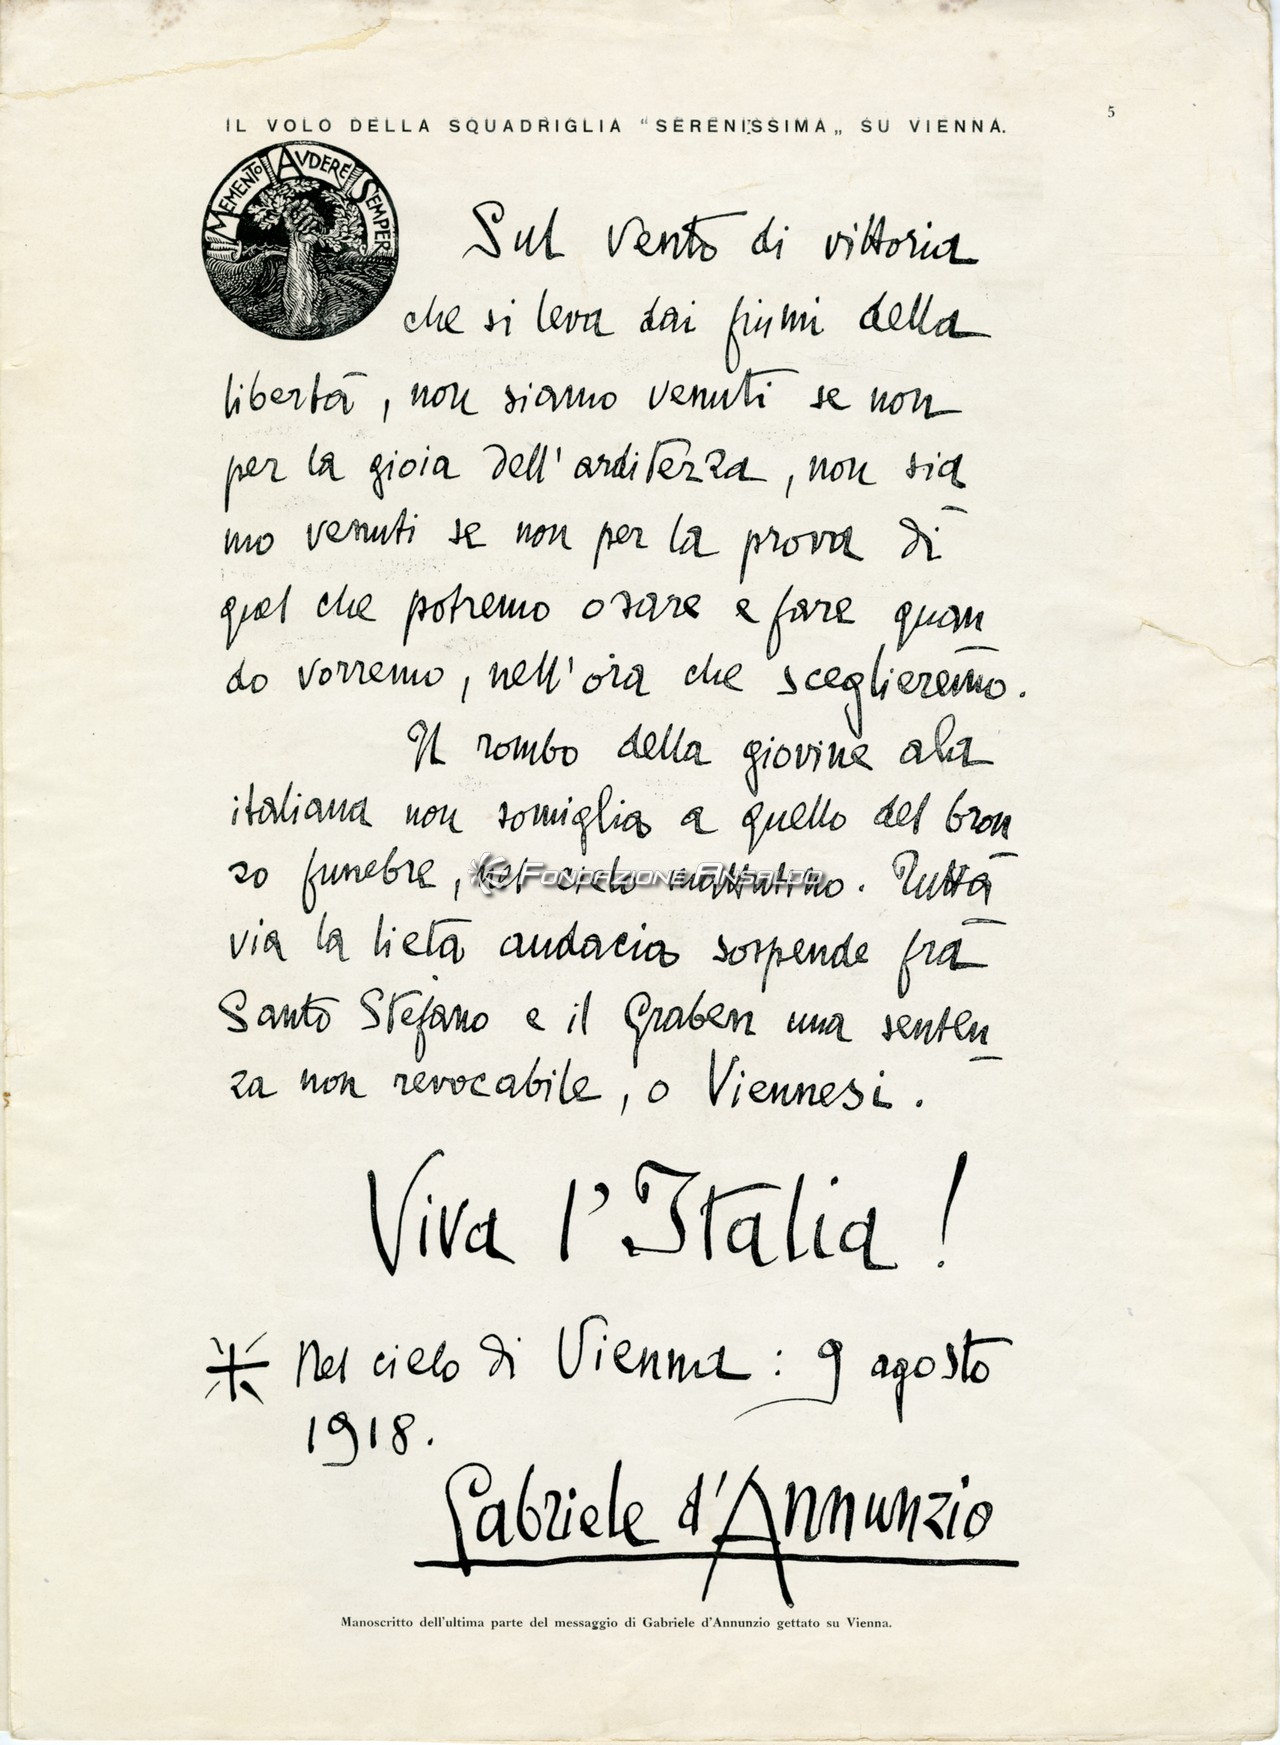 5
IL VOLO DELLA SQUADRIGLIA "SERENISSIMA„ SU VIENNA.
MEMENTO AVDERE SEMPER
Sul vento di vittoria
che si leva dai fiumi della
libertà, non siamo venuti se non
per la gioia dell'arditezza, non sia
mo venuti se non per la prova di
quel che potremo osare e fare quan
do vorremo, nell'ora che sceglieremo.
Il rombo della giovine ala
italiana non somiglia a quello del bron
zo funebre, nel cielo mattutino. Tutta
via la lieta audacia sospende fra
Santo Stefano e il Graben una senten
za non revocabile, o Viennesi.
Viva l'Italia!
Nel cielo di Vienna: 9 agosto
1918.
Gabriele d'Annunzio
Manoscritto dell'ultima parte del messaggio di Gabriele d'Annunzio gettato su Vienna.
FONDAZIONE ANSALDO